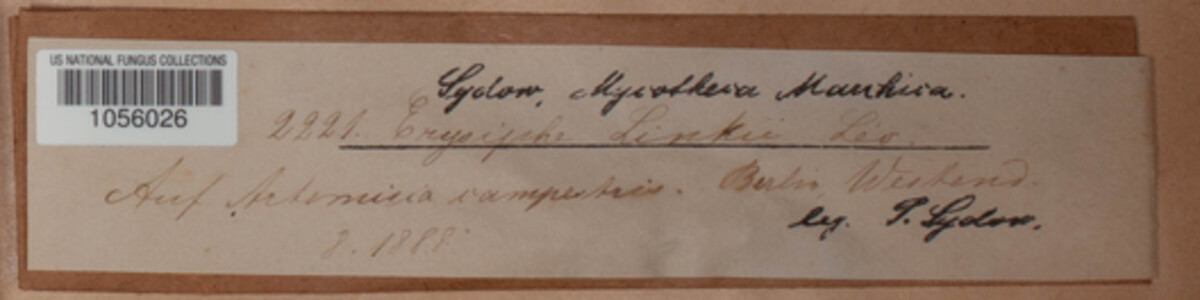 US NATIONAL FUNGUS COLLECTIONS
1056026
Sydow, Mycotheca Marchica.
2221. Erysiphe Linkii Lév.
Auf Artemisia campestris. Berlin, Westend.
leg. P. Sydow.
8. 1888